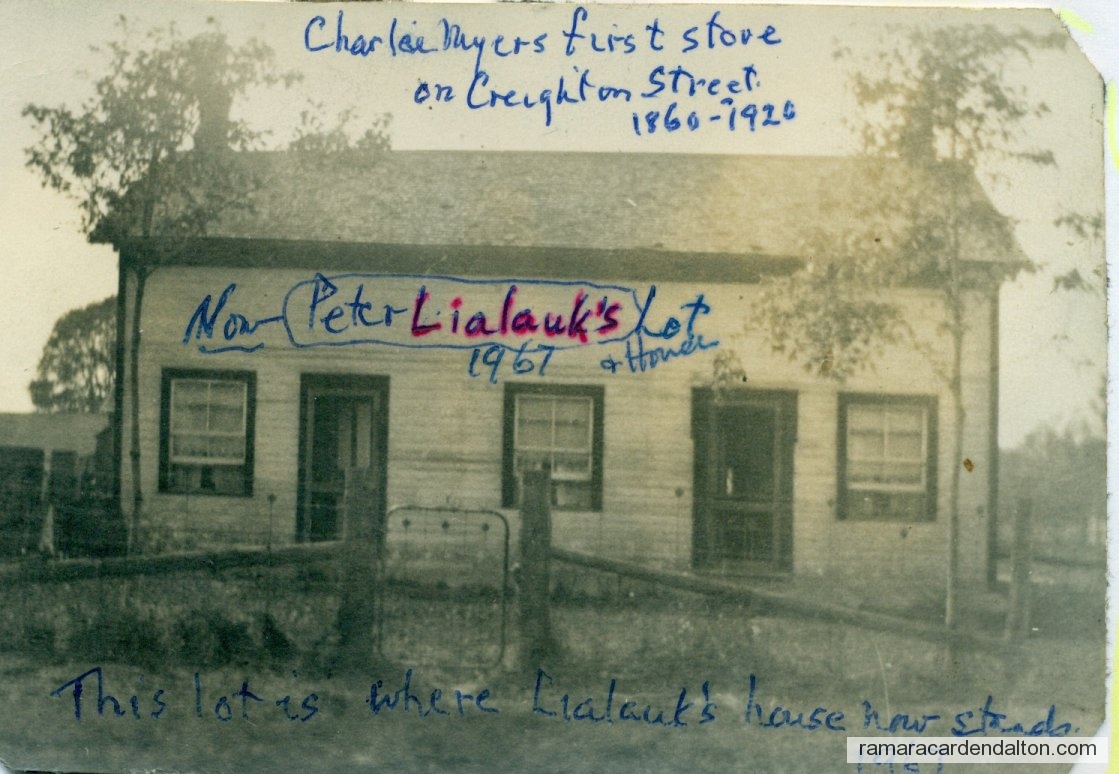 Charlie Myers first store
on Creighton Street.
1860-1920
Now Peter Lialauk's Lot
1967 & House
This lot is where Lialauk's house now stands.
ramaracardendalton.com